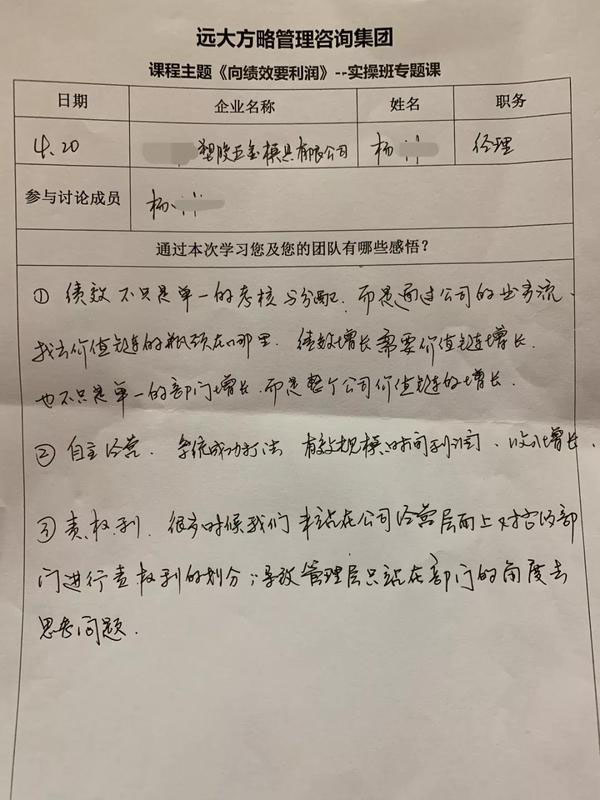 远大方略管理咨询集团
课程主题《向绩效要利润》--实操班专题课
日期 企业名称 姓名 职务
4.20 塑胶五金模具有限公司 杨 经理
参与讨论成员 杨
通过本次学习您及您的团队有哪些感悟？
① 绩效不只是单一的考核与分配，而是通过公司的业务流，
找出价值链的瓶颈在哪里．绩效增长需要价值链增长．
也不只是单一的部门增长，而是整个公司价值链的增长．
② 自主经营．系统成功打法 有效规模时间利润、收入增长．
③ 责权利．很多时候我们未站在公司经营层面上对各部
门进行责权利的划分；导致管理层只站在部门的角度去
思考问题．